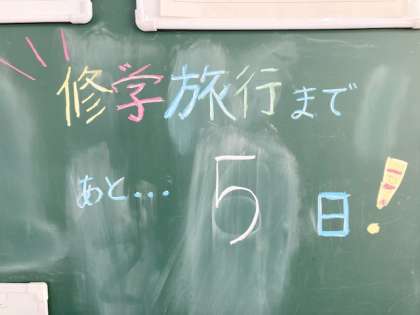 修学旅行まで
あと... 5日!